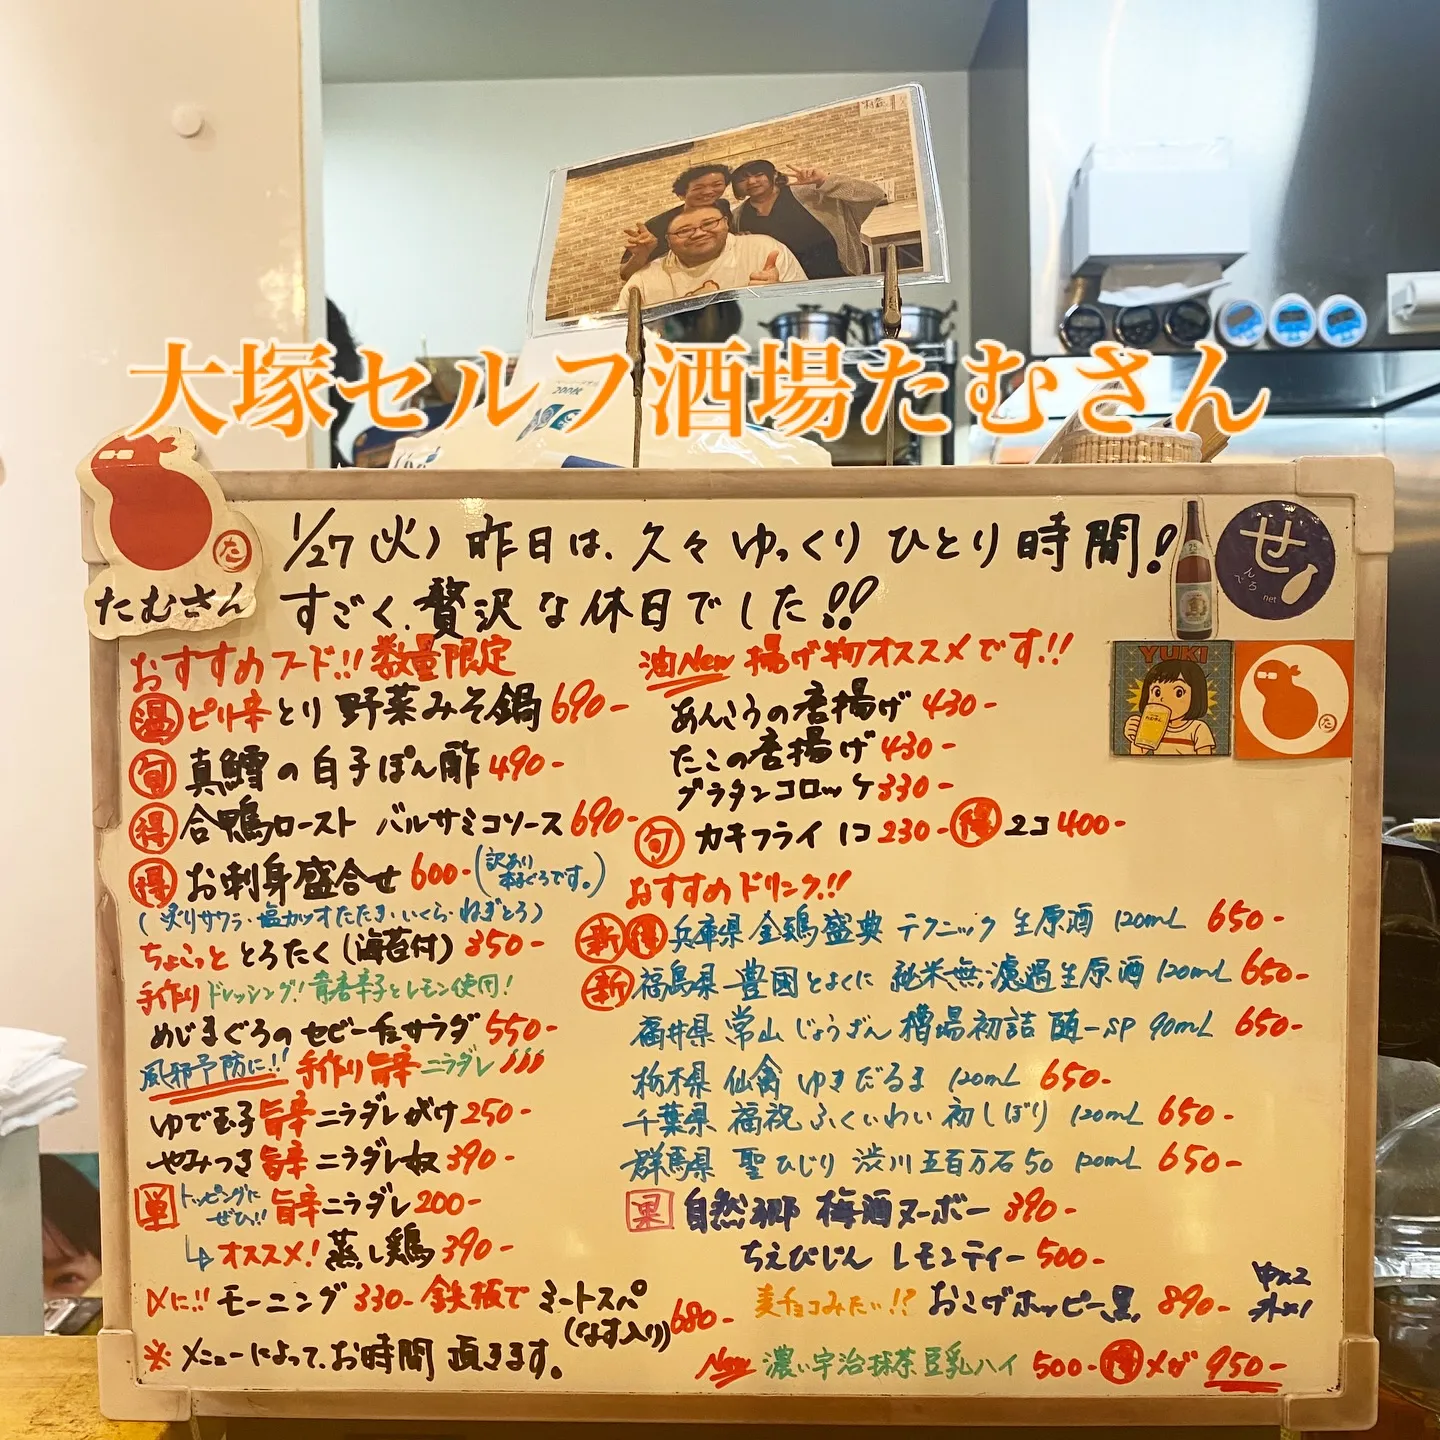 大塚セルフ酒場たむさん
た
たむさん
1/27(火) 昨日は、久々ゆっくりひとり時間!
すごく、贅沢な休日でした!!
せ
んべろ
net
YUKI
た
おすすめフード!! 数量限定
温 ピリ辛とり野菜みそ鍋 690-
旬 真鱈の白子ぽん酢 490-
得 合鴨ロースト バルサミコソース 690-
得 お刺身盛合せ 600- (訳あり 本まぐろです。)
(炙りサワラ・塩カツオたたき・いくら・ねぎとろ)
ちょこっと とろたく(海苔付) 350-
手作りドレッシング! 青唐辛子とレモン使用!
めじまぐろのセビーチェサラダ 550-
風邪予防に!! 手作り旨辛ニラダレ
ゆで玉子旨辛ニラダレがけ 250-
やみつき旨辛ニラダレ奴 390-
単 トッピングにぜひ!! 旨辛ニラダレ 200-
オススメ! 蒸し鶏 390-
〆に!! モーニング 330- 鉄板でミートスパ(なす入り) 680-
※メニューによって、お時間 頂きます。
油New 揚げ物オススメです!!
あんこうの唐揚げ 430-
たこの唐揚げ 430-
グラタンコロッケ 330-
旬 カキフライ 1コ 230- 得 2コ 400-
おすすめドリンク!!
新 得 兵庫県 金鵄盛典 テクニック 生原酒 120mL 650-
新 福島県 豊國とよくに 純米無濾過生原酒 120mL 650-
福井県 常山 じょうざん 槽場初詰 -SP 90mL 650-
栃木県 仙禽 ゆきだるま 120mL 650-
千葉県 福祝 ふくいわい 初しぼり 120mL 650-
群馬県 聖ひじり 渋川五百万石50 120mL 650-
果 自然郷 梅酒ヌーボー 390-
ちえびじん レモンティー 500-
麦チョコみたい!? おこげホッピー黒 890- 中×2 外×1
New 濃い宇治抹茶豆乳ハイ 500- 得 メガ 950-